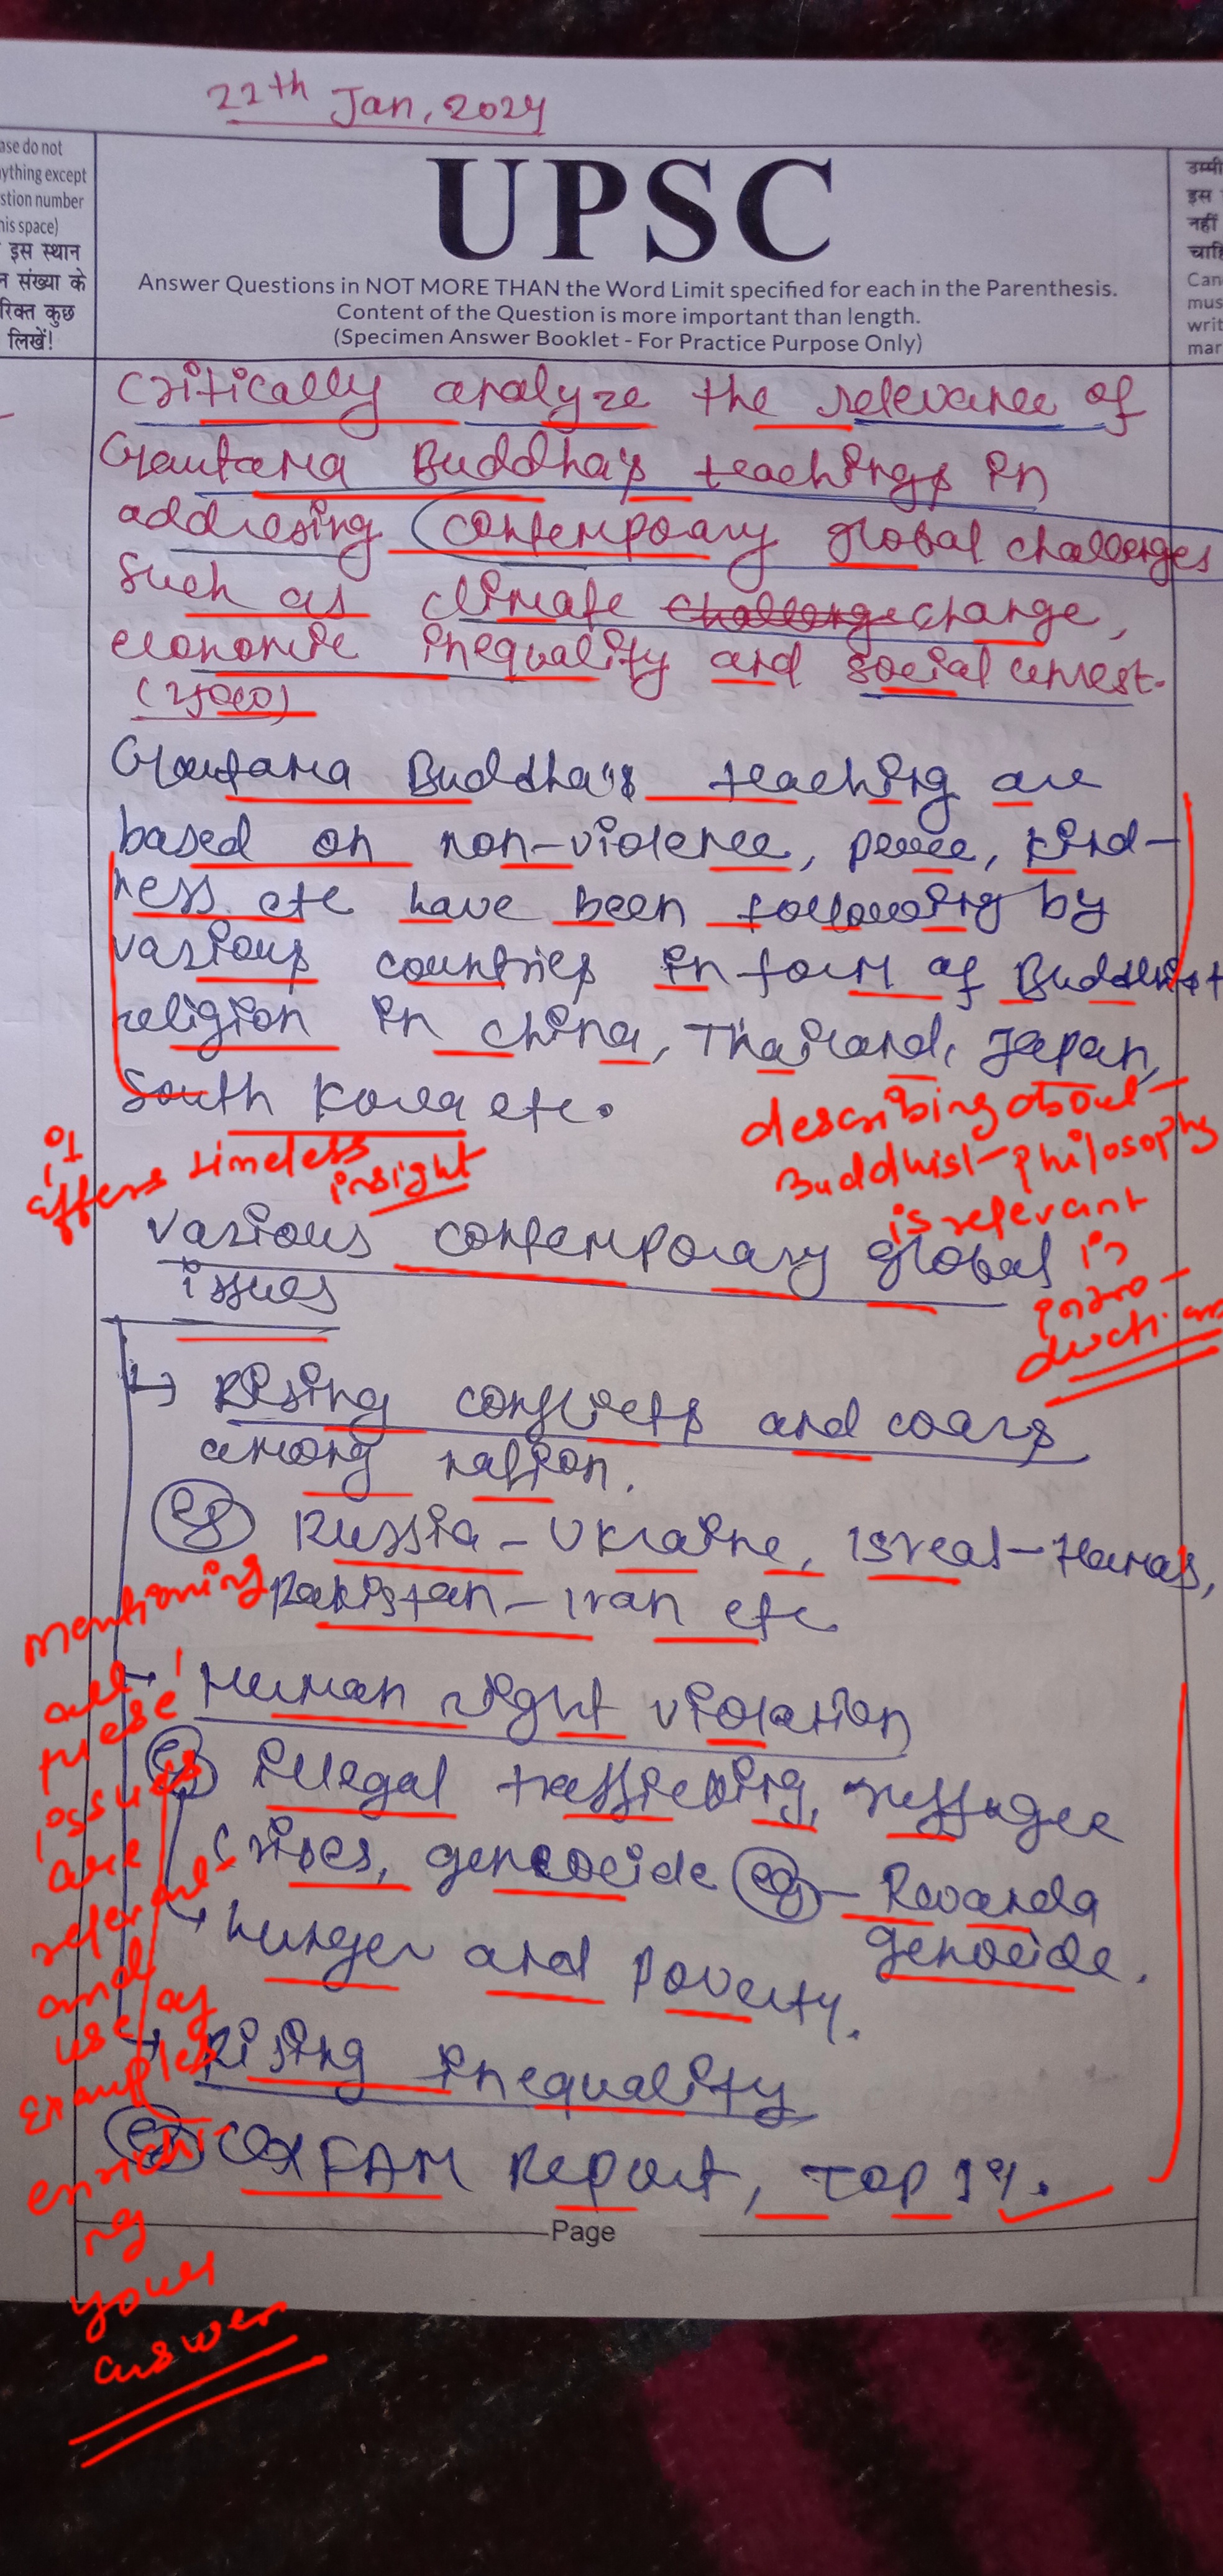 22th Jan, 2024
ase do not
nything except
stion number
his space)
इस स्थान
न संख्या के
रिक्त कुछ
लिखें!
UPSC
Answer Questions in NOT MORE THAN the Word Limit specified for each in the Parenthesis.
Content of the Question is more important than length.
(Specimen Answer Booklet - For Practice Purpose Only)
उम्मी
इस
नहीं
चाहि
Can
mus
writ
mar
Critically analyze the relevance of
Gautama Buddha's teachings in
addresing contempoary global challenges
such as climate challenge change,
economic inequality and social unrest.
Gautama Buddha's teaching are
based on non-violence, peace, kind-
ness etc have been following by
various countries in form of Buddhist
religion in China, Thailand, Japan,
South Korea etc.
it
offers timeless
insight
describing about
Buddhist philosophy
is relevant
in
intro-
duction
Various contemporary global
issues
↳ Rising conflicts and wars
among nation.
eg Russia-Ukraine, Isreal-Hamas,
Pakistan-Iran etc
→ Human right violation
eg illegal trafficking, reffugee
crises, genocide eg - Rwanda
genocide.
↳ hunger and poverty.
→ Rising inequality
eg OXFAM Report, Top 1%.
mentioning
all
these
issues
are
relevant
and
use of
examples
enrichi
ng
your
answer
Page